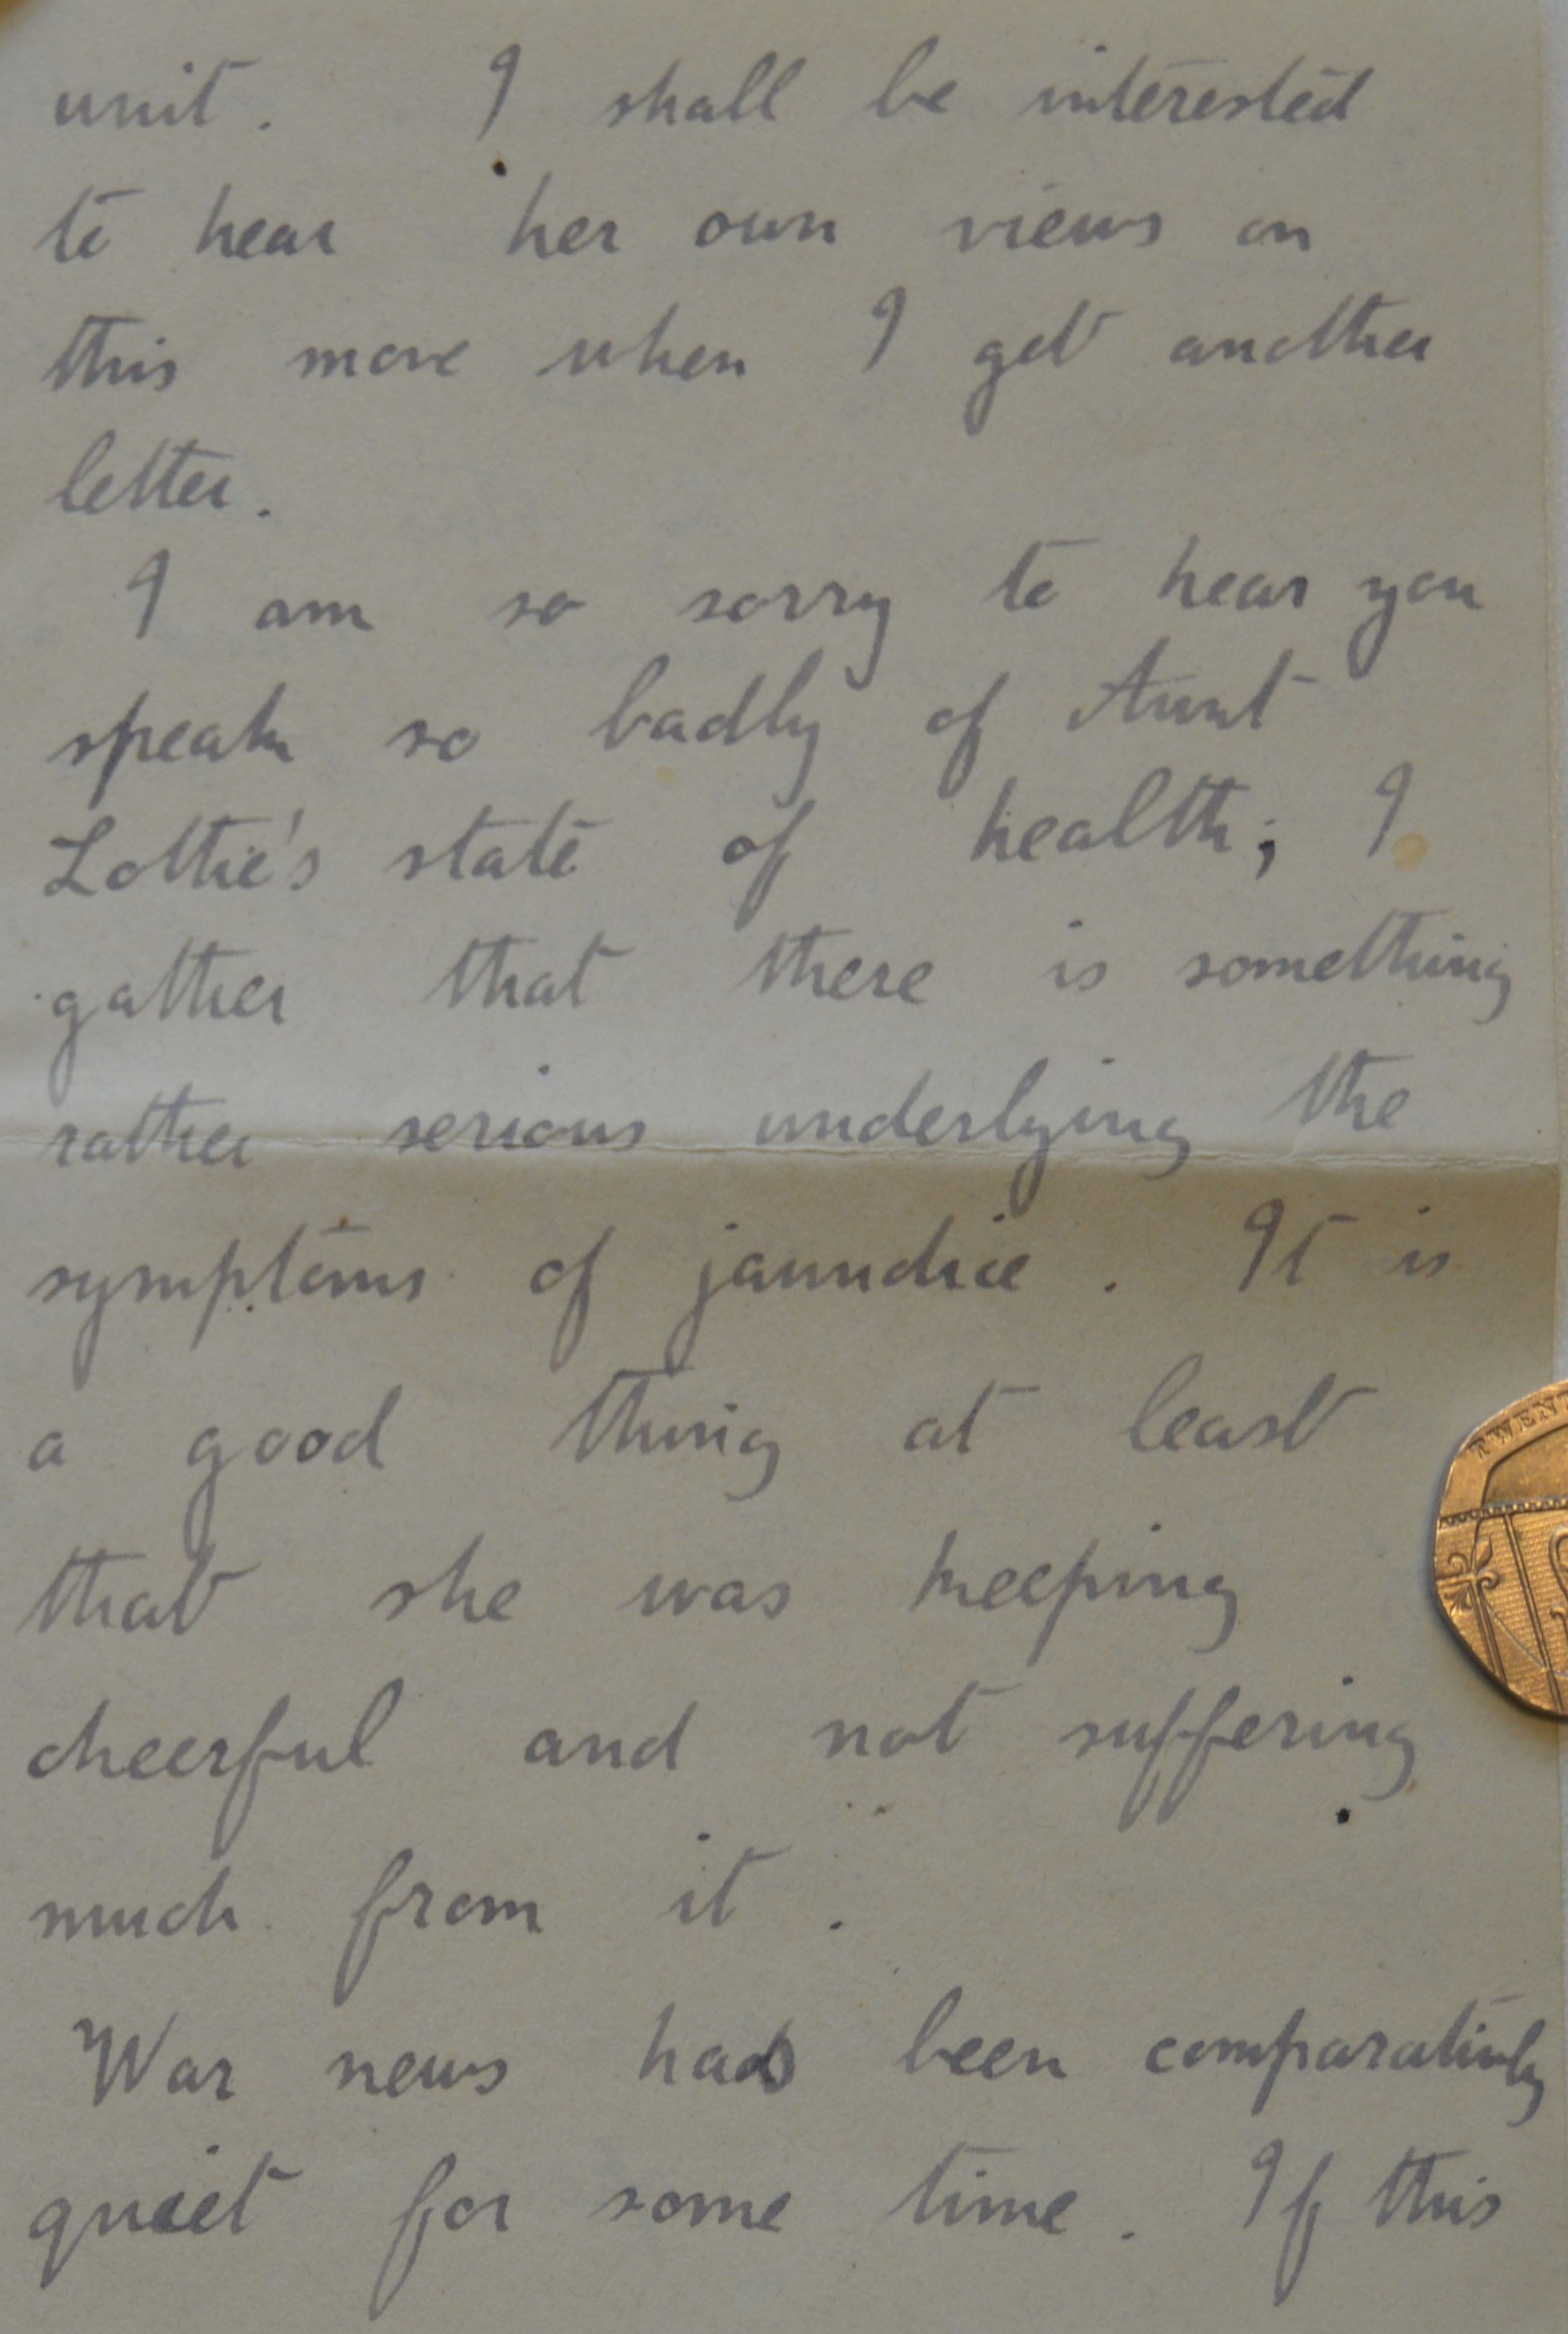 unit. I shall be interested
to hear her own views on
this move when I get another
letter.
I am so sorry to hear you
speak so badly of Aunt
Lottie's state of health; I
gather that there is something
rather serious underlying the
symptoms of jaundice. It is
a good thing at least
that she was keeping
cheerful and not suffering
much from it.
War news has been comparatively
quiet for some time. If this
TWENT